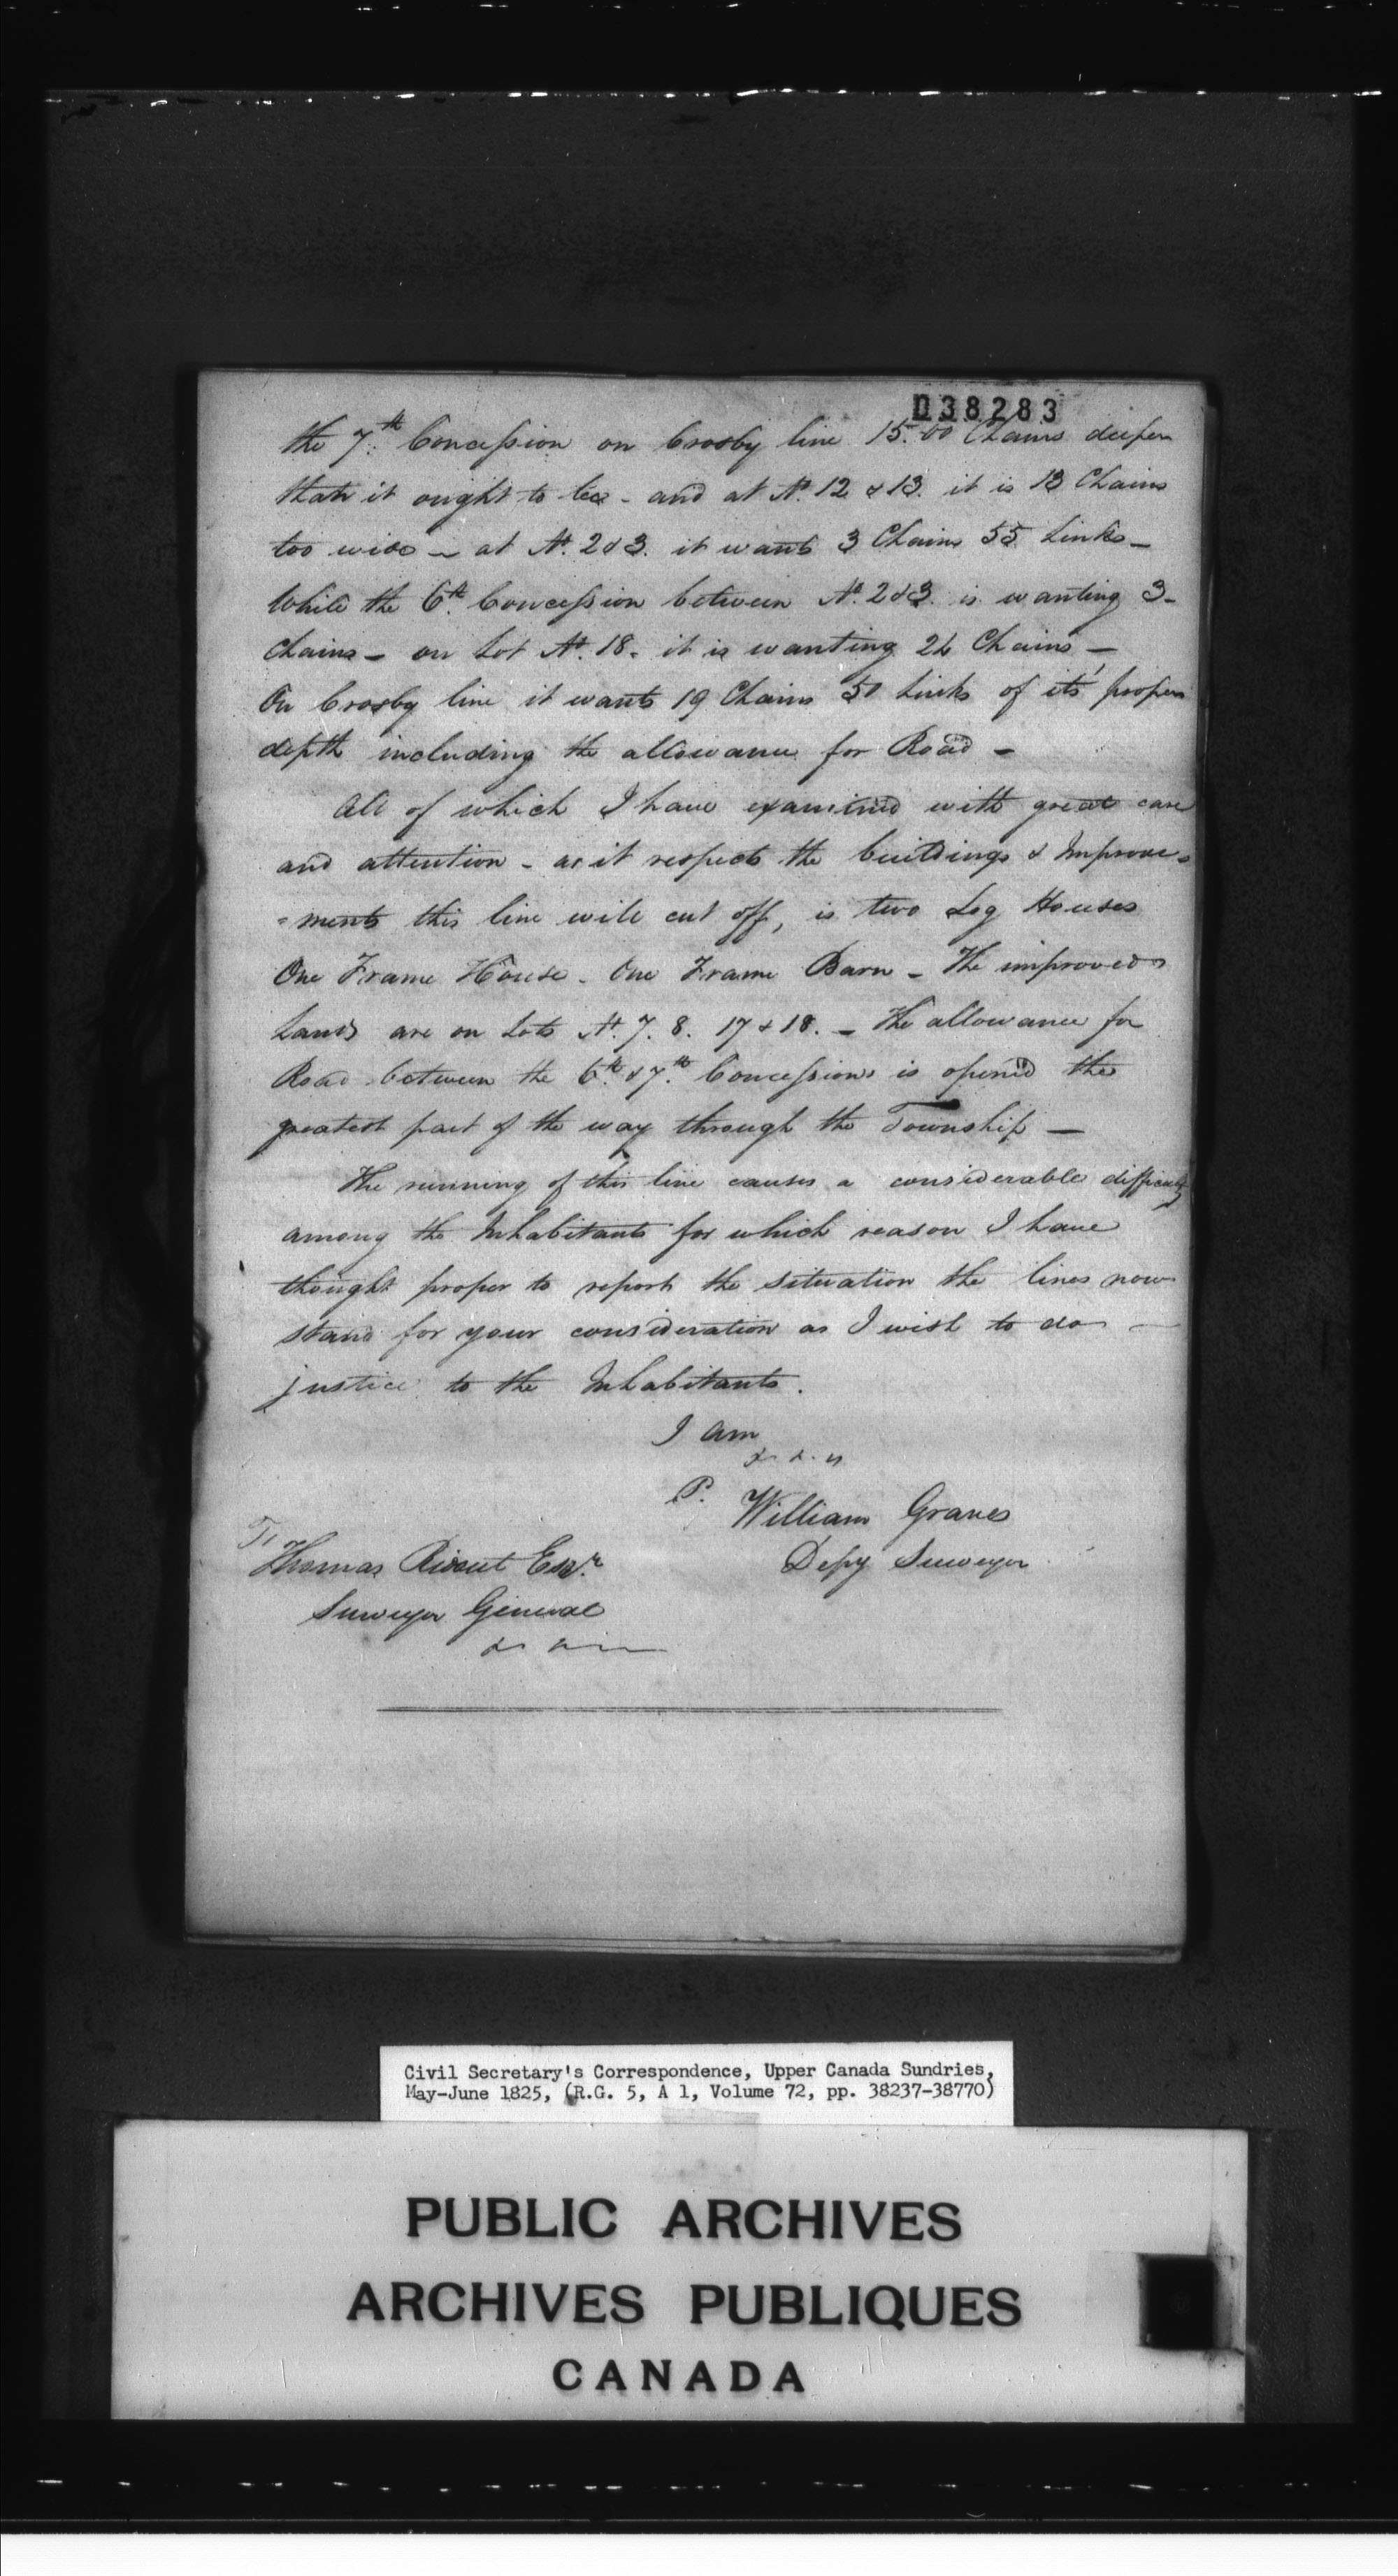 038283
the 7th Concession on Crosby line 15.00 Chains deeper
than it ought to be - and at No. 12 & 13. it is 13 Chains
too wide - at No. 2 & 3. it wants 3 Chains 55 Links -
While the 6th Concession between No. 2 & 3. is wanting 3 -
Chains - on Lot No. 18. it is wanting 24 Chains -
On Crosby line it wants 19 Chains 50 Links of it's proper
depth including the allowance for Road -
All of which I have examined with great care
and attention - as it respects the buildings & Improve=
=ments this line will cut off, is two Log Houses
One Frame House - One Frame Barn - The improved
Lands are on Lots No. 7. 8. 17 & 18. - The allowance for
Road between the 6th & 7th Concessions is opened the
greatest part of the way through the Township -
The running of this line causes a considerable difficulty
among the Inhabitants for which reason I have
thought proper to report the situation the lines now
stand for your consideration as I wish to do -
justice to the Inhabitants.
I am
William Graves
Depy Surveyor
To
Thomas Ridout Esqr.
Surveyor General
Civil Secretary's Correspondence, Upper Canada Sundries,
May-June 1825, (R.G. 5, A 1, Volume 72, pp. 38237-38770)
PUBLIC ARCHIVES
ARCHIVES PUBLIQUES
CANADA